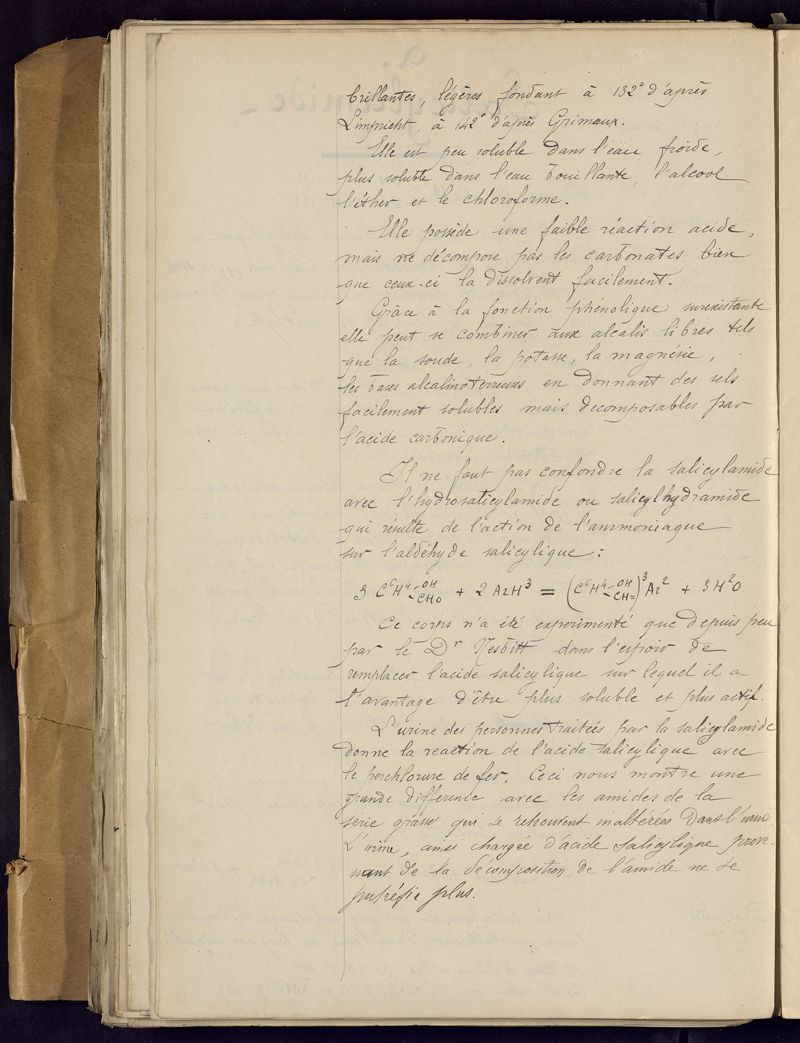 brillantes, légères fondant à 132° d'après
Limpricht à 142° d'après Grimaux.
Elle est peu soluble dans l'eau froide,
plus soluble dans l'eau bouillante, l'alcool
l'éther et le chloroforme.
Elle possède une faible réaction acide,
mais ne décompose pas les carbonates bien
que ceux-ci la dissolvent facilement.
Grâce à la fonction phénolique surexistante
elle peut se combiner aux alcalis libres tels
que la soude, la potasse, la magnésie,
les bases alcalinoterreuses en donnant des sels
facilement solubles mais decomposables par
l'acide carbonique.
Il ne faut pas confondre la salicylamide
avec l'hydrosalicylamide ou salicylhydramide
qui résulte de l'action de l'ammoniaque
sur l'aldéhyde salicylique :
3 C⁶H⁴-OH-CHO + 2 AzH³ = (C⁶H⁴-OH-CH=)³ Az² + 3H²O
Ce corps n'a été experimenté que depuis peu
par le Dr Nesbitt dans l'espoir de
remplacer l'acide salicylique sur lequel il a
l'avantage d'être plus soluble et plus actif.
L'urine des personnes traitées par la salicylamide
donne la reaction de l'acide salicylique avec
le perchlorure de fer. Ceci nous montre une
grande difference avec les amides de la
série grasse qui se retrouvent inaltérées dans l'urine
L'urine, ainsi chargée d'acide salicylique prove-
nant de la décomposition de l'amide ne se
putréfie plus.